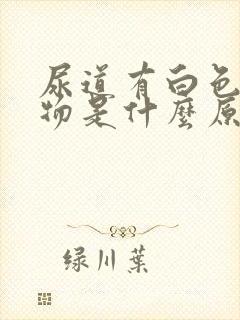 尿道有白色
物是什麼原
绿川葉